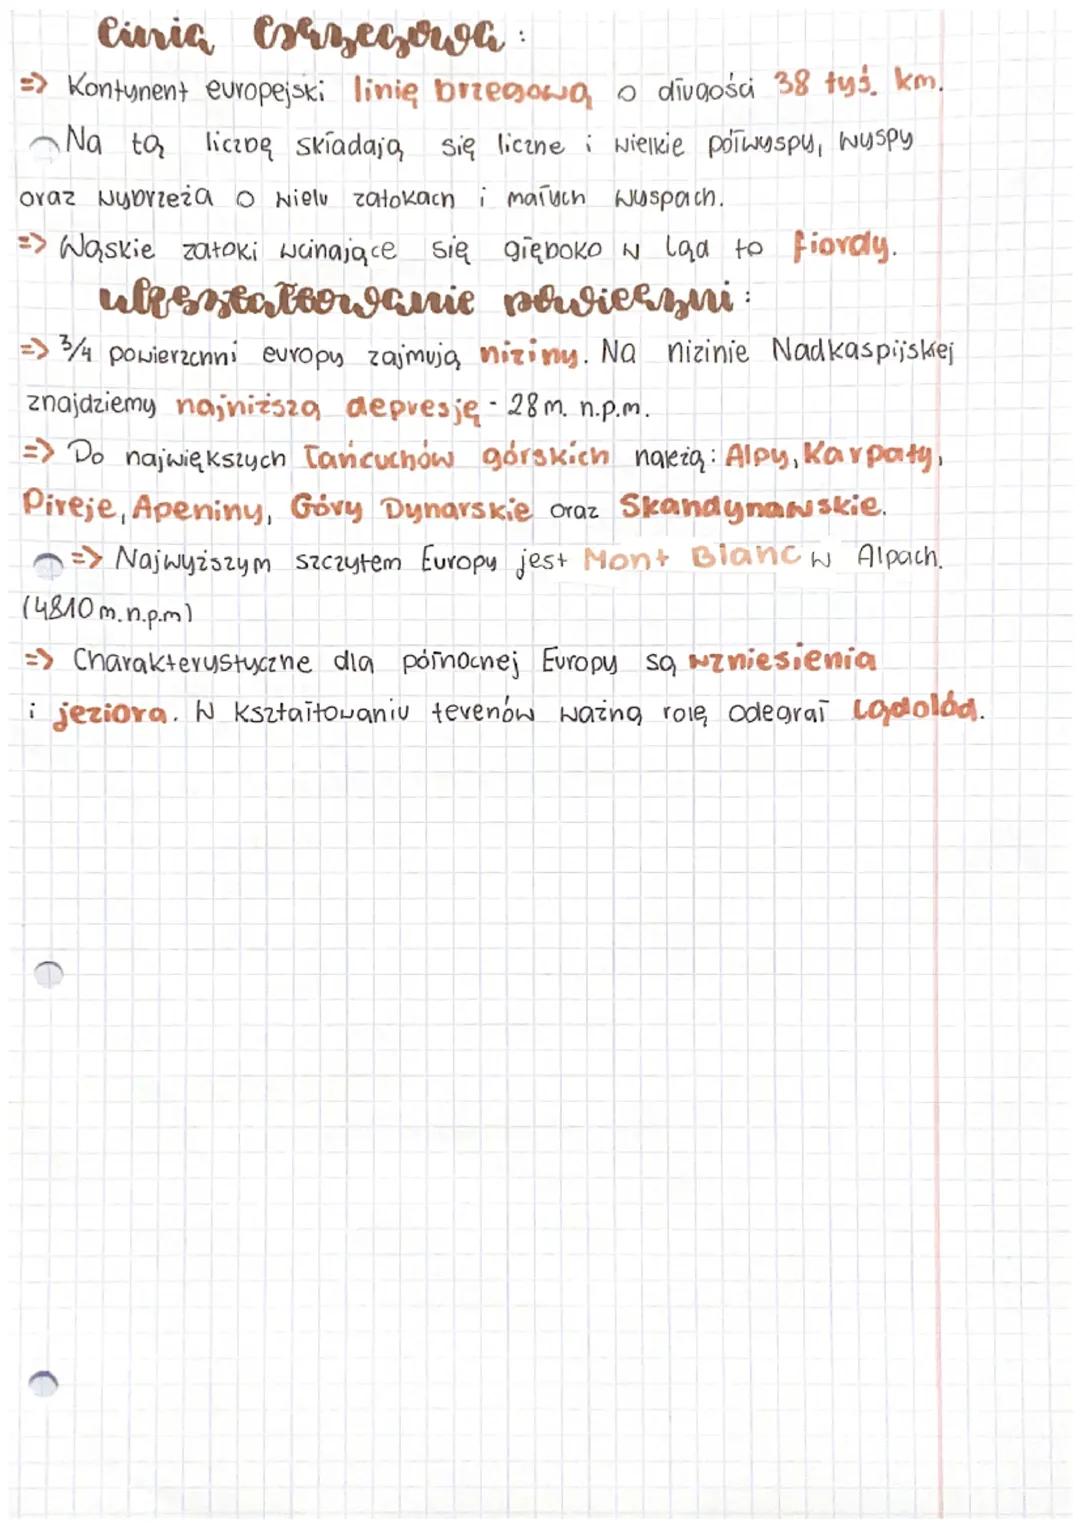 Linia brzegowa:
=> Kontynent europejski linię brzegową o długości 38 tyś. km.
Na tą liczbę składają się liczne i wielkie półwyspy, wyspy
oraz wybrzeża o wielu zatokach i małych wyspach.
=> Wąskie zatoki wcinające się głęboko w ląd to fiordy.
ukształtowanie powierzni:
=> 3/4 powierzchni europy zajmują niziny. Na nizinie Nadkaspijskiej
znajdziemy najniższą depresję - 28 m. n.p.m.
=> Do największych łańcuchów górskich należą: Alpy, Karpaty,
Pireje, Apeniny, Góry Dynarskie oraz Skandynawskie.
=> Najwyższym szczytem Europy jest Mont Blanc w Alpach.
(4810 m.n.p.m)
=> Charakterystyczne dla północnej Europy są wzniesienia
i jeziora. W kształtowaniu terenów ważną rolę odegrał Lądolód.